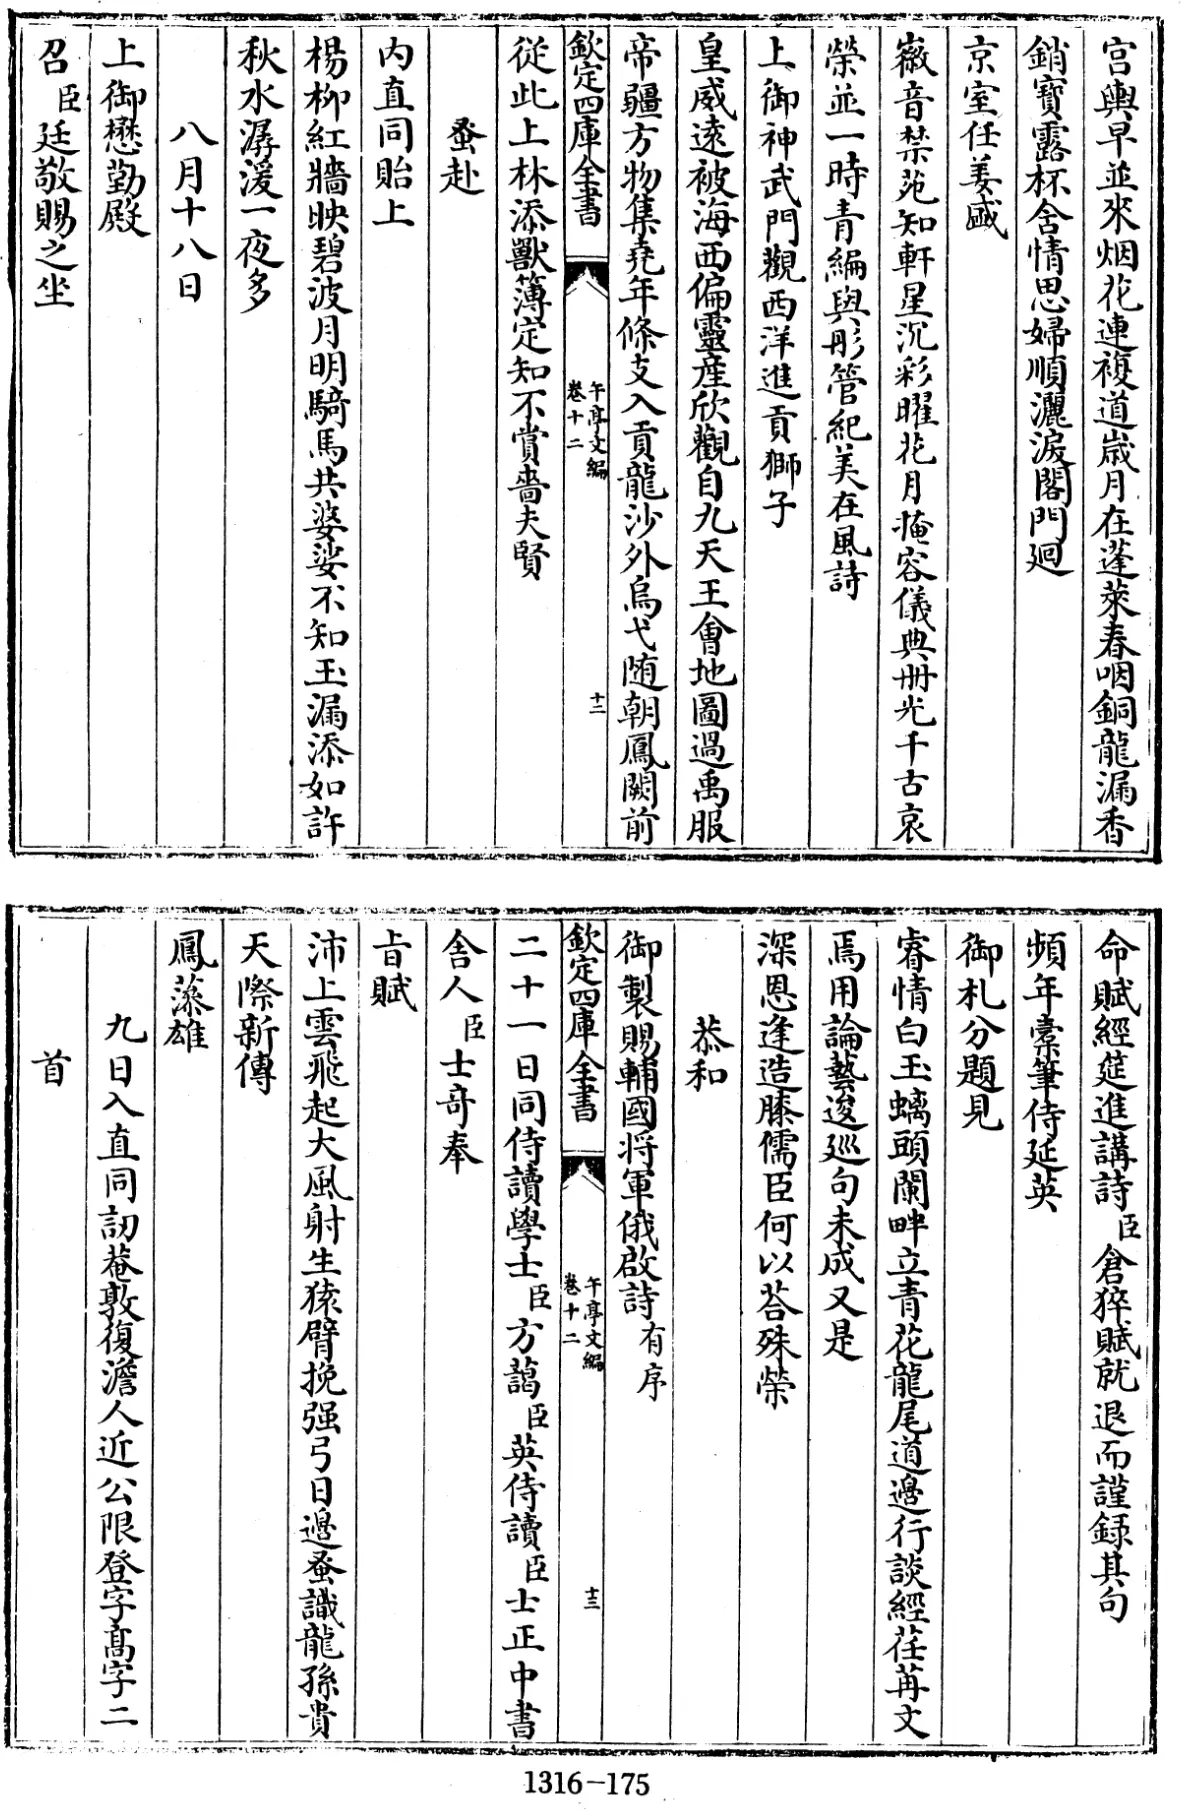 宫輿早並來烟花連複道歲月在蓬萊春咽銅龍漏香
銷寶露杯含情思婦順灑淚閟門廻
京室任姜盛
徽音禁苑知軒星沉彩曜花月掩容儀典册光千古哀
榮並一時青編與彤管紀美在風詩
上御神武門觀西洋進貢獅子
皇威遠被海西偏靈產欣觀自九天王會地圖過禹服
帝疆方物集堯年條支入貢龍沙外烏弋随朝鳳闕前
欽定四庫全書
午亭文編
卷十二
十二
從此上林添獸簿定知不賞嗇夫賢
蚤赴
内直同貽上
楊柳紅牆映碧波月明騎馬共婆娑不知玉漏添如許
秋水潺湲一夜多
八月十八日
上御懋勤殿
召臣廷敬賜之坐
命賦經筵進講詩臣倉猝賦就退而謹録其句
頻年橐筆侍延英
御札分題見
睿情白玉螭頭闌畔立青花龍尾道邊行談經荏苒文
焉用論藝逡巡句未成又是
深恩逢造膝儒臣何以荅殊榮
恭和
御製賜輔國將軍俄啟詩有序
欽定四庫全書
午亭文編
卷十二
十三
二十一日同侍讀學士臣方藹臣英侍讀臣士正中書
舍人臣士奇奉
旨賦
沛上雲飛起大風射生猿臂挽强弓日邊蚤識龍孫貴
天際新傳
鳳藻雄
九日入直同訒菴敦復澹人近公限登字髙字二
首
1316-175